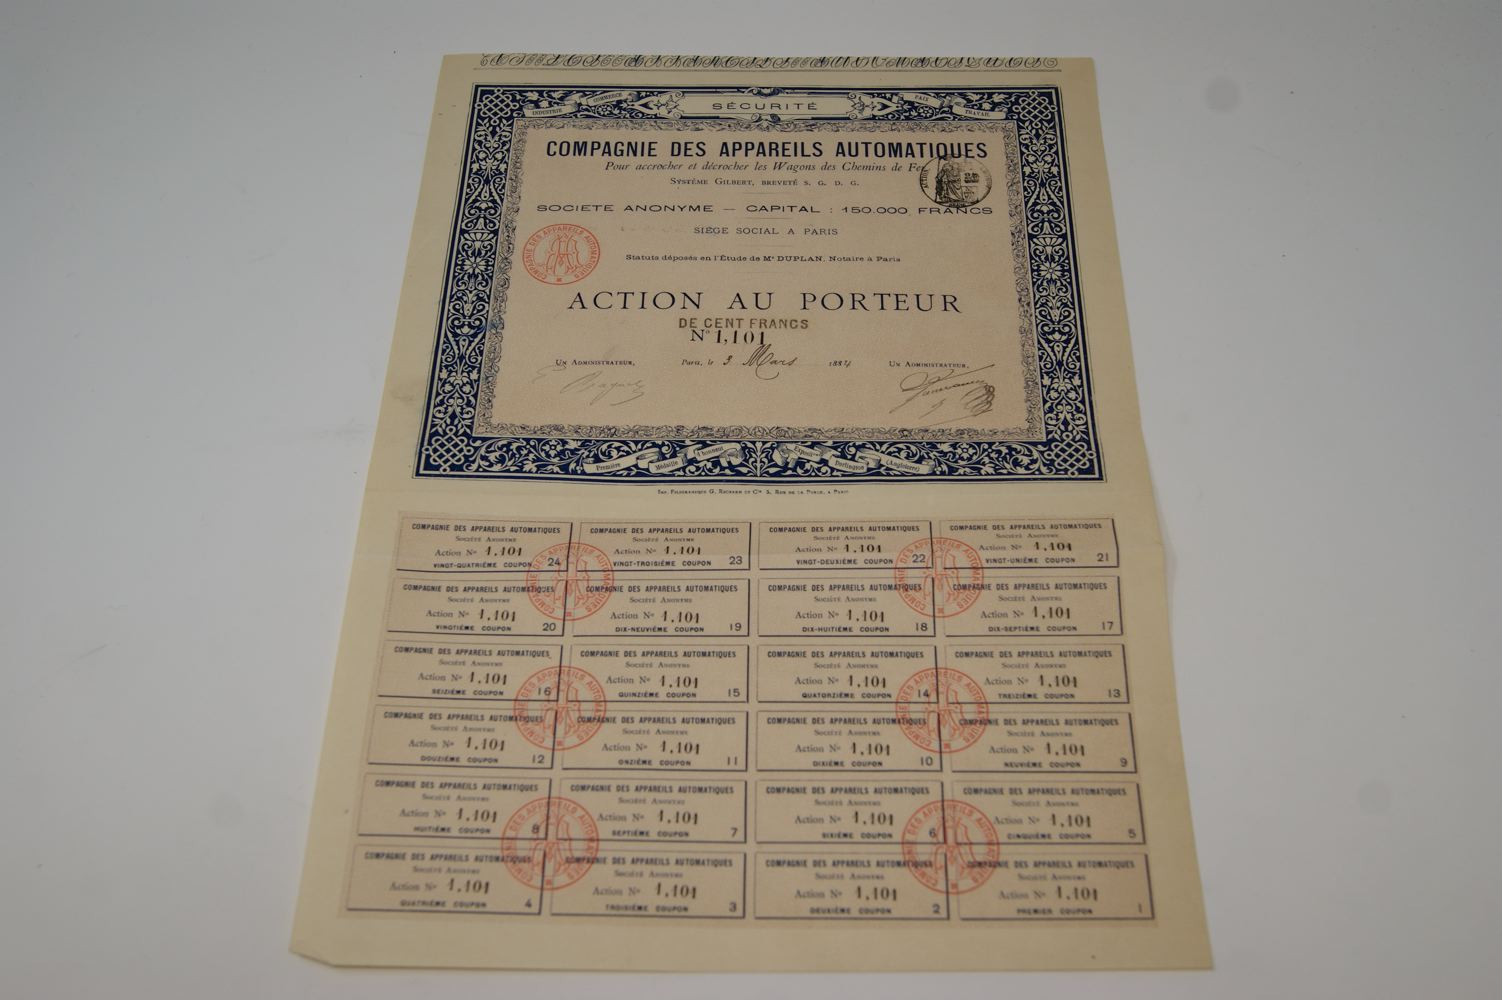 INDUSTRIE COMMERCE SÉCURITÉ PAIX TRAVAIL
COMPAGNIE DES APPAREILS AUTOMATIQUES
Pour accrocher et décrocher les Wagons des Chemins de Fer
SYSTÈME GILBERT, BREVETÉ S. G. D. G.
SOCIÉTÉ ANONYME — CAPITAL : 150.000 FRANCS
SIÈGE SOCIAL A PARIS
COMPAGNIE DES APPAREILS AUTOMATIQUES
Statuts déposés en l'Étude de Me DUPLAN, Notaire à Paris
ACTION AU PORTEUR
DE CENT FRANCS
No 1,101
UN ADMINISTRATEUR, Paris, le 3 Mars 1884 UN ADMINISTRATEUR,
Première Médaille d'honneur Exposit Darlington (Angleterre)
COMPAGNIE DES APPAREILS AUTOMATIQUES COMPAGNIE DES APPAREILS AUTOMATIQUES COMPAGNIE DES APPAREILS AUTOMATIQUES COMPAGNIE DES APPAREILS AUTOMATIQUES
SOCIÉTÉ ANONYME SOCIÉTÉ ANONYME SOCIÉTÉ ANONYME SOCIÉTÉ ANONYME
Action No 1,101 Action No 1,101 Action No 1,101 Action No 1,101
VINGT-QUATRIÈME COUPON 24 VINGT-TROISIÈME COUPON 23 VINGT-DEUXIÈME COUPON 22 VINGT-UNIÈME COUPON 21
COMPAGNIE DES APPAREILS AUTOMATIQUES COMPAGNIE DES APPAREILS AUTOMATIQUES
COMPAGNIE DES APPAREILS AUTOMATIQUES COMPAGNIE DES APPAREILS AUTOMATIQUES COMPAGNIE DES APPAREILS AUTOMATIQUES COMPAGNIE DES APPAREILS AUTOMATIQUES
SOCIÉTÉ ANONYME SOCIÉTÉ ANONYME SOCIÉTÉ ANONYME SOCIÉTÉ ANONYME
Action No 1,101 Action No 1,101 Action No 1,101 Action No 1,101
VINGTIÈME COUPON 20 DIX-NEUVIÈME COUPON 19 DIX-HUITIÈME COUPON 18 DIX-SEPTIÈME COUPON 17
COMPAGNIE DES APPAREILS AUTOMATIQUES COMPAGNIE DES APPAREILS AUTOMATIQUES COMPAGNIE DES APPAREILS AUTOMATIQUES COMPAGNIE DES APPAREILS AUTOMATIQUES
SOCIÉTÉ ANONYME SOCIÉTÉ ANONYME SOCIÉTÉ ANONYME SOCIÉTÉ ANONYME
Action No 1,101 Action No 1,101 Action No 1,101 Action No 1,101
SEIZIÈME COUPON 16 QUINZIÈME COUPON 15 QUATORZIÈME COUPON 14 TREIZIÈME COUPON 13
COMPAGNIE DES APPAREILS AUTOMATIQUES COMPAGNIE DES APPAREILS AUTOMATIQUES
COMPAGNIE DES APPAREILS AUTOMATIQUES COMPAGNIE DES APPAREILS AUTOMATIQUES COMPAGNIE DES APPAREILS AUTOMATIQUES COMPAGNIE DES APPAREILS AUTOMATIQUES
SOCIÉTÉ ANONYME SOCIÉTÉ ANONYME SOCIÉTÉ ANONYME SOCIÉTÉ ANONYME
Action No 1,101 Action No 1,101 Action No 1,101 Action No 1,101
DOUZIÈME COUPON 12 ONZIÈME COUPON 11 DIXIÈME COUPON 10 NEUVIÈME COUPON 9
COMPAGNIE DES APPAREILS AUTOMATIQUES COMPAGNIE DES APPAREILS AUTOMATIQUES COMPAGNIE DES APPAREILS AUTOMATIQUES COMPAGNIE DES APPAREILS AUTOMATIQUES
SOCIÉTÉ ANONYME SOCIÉTÉ ANONYME SOCIÉTÉ ANONYME SOCIÉTÉ ANONYME
Action No 1,101 Action No 1,101 Action No 1,101 Action No 1,101
HUITIÈME COUPON 8 SEPTIÈME COUPON 7 SIXIÈME COUPON 6 CINQUIÈME COUPON 5
COMPAGNIE DES APPAREILS AUTOMATIQUES COMPAGNIE DES APPAREILS AUTOMATIQUES
COMPAGNIE DES APPAREILS AUTOMATIQUES COMPAGNIE DES APPAREILS AUTOMATIQUES COMPAGNIE DES APPAREILS AUTOMATIQUES COMPAGNIE DES APPAREILS AUTOMATIQUES
SOCIÉTÉ ANONYME SOCIÉTÉ ANONYME SOCIÉTÉ ANONYME SOCIÉTÉ ANONYME
Action No 1,101 Action No 1,101 Action No 1,101 Action No 1,101
QUATRIÈME COUPON 4 TROISIÈME COUPON 3 DEUXIÈME COUPON 2 PREMIER COUPON 1